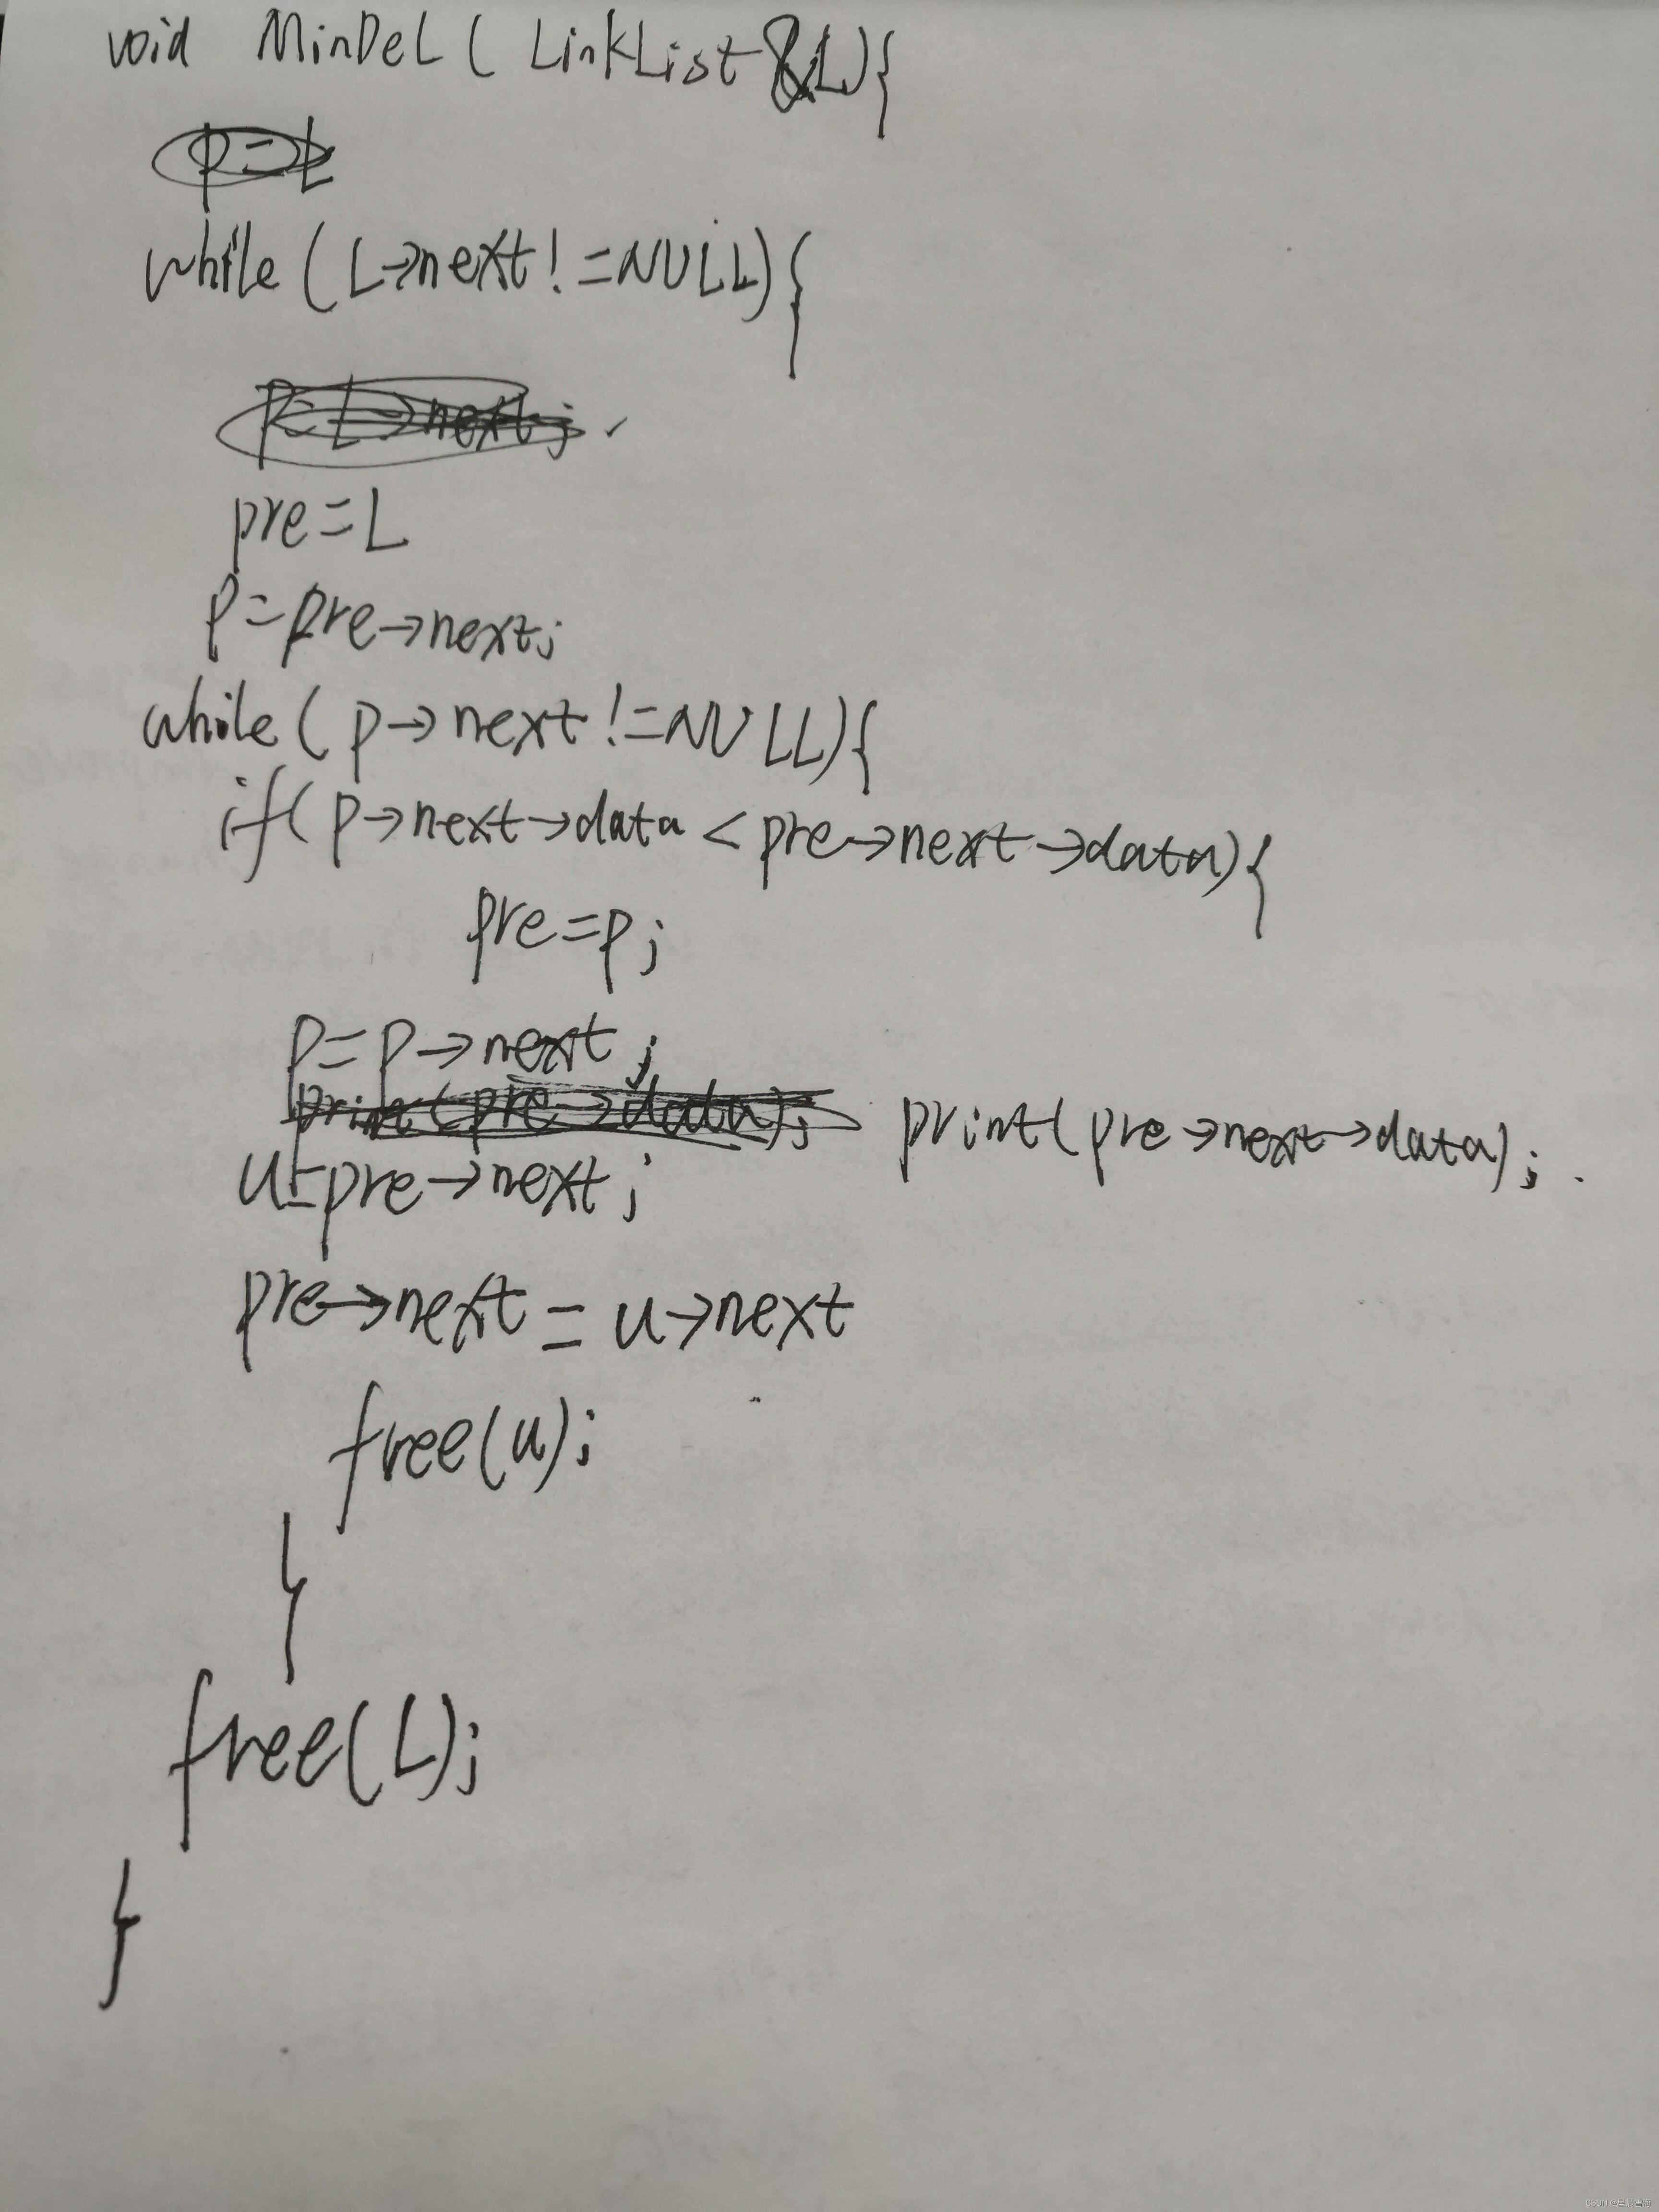 void MinDeL ( LinkList &L){
p=L
while ( L->next!=NULL){
p=L->next;
pre=L
p=pre->next;
while ( p->next!=NULL){
if( p->next->data < pre->next->data){
pre=p;
p=p->next;
print(pre->data); print(pre->next->data);
u=pre->next;
pre->next = u->next
free(u);
}
free(L);
}